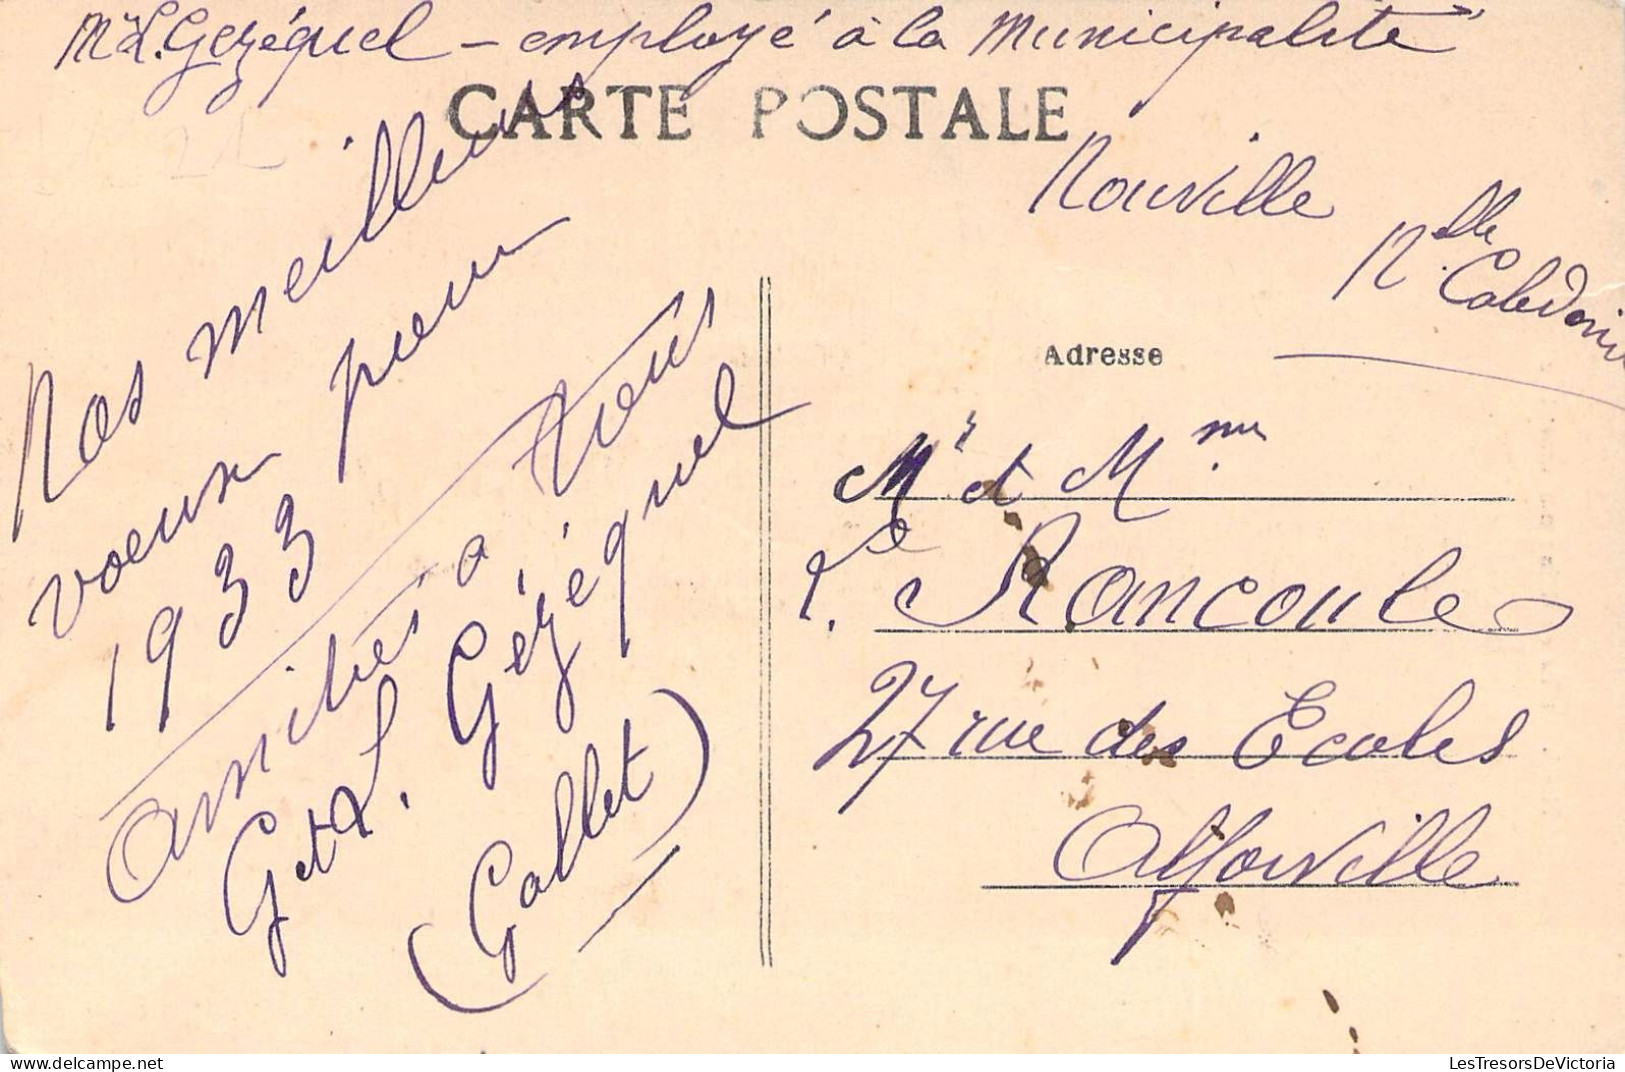 Mr L. Gezéquel - employé à la Municipalité
CARTE POSTALE
Nouville
Nlle Caledonie
Nos meilleurs
voeux
1933 pour
amitiés à tous
G et L. Gézéquel
(Gallet)
Adresse
Mr et Mme
Rancoule
27 rue des Ecoles
Alforville
LesTresorsDeVictoria